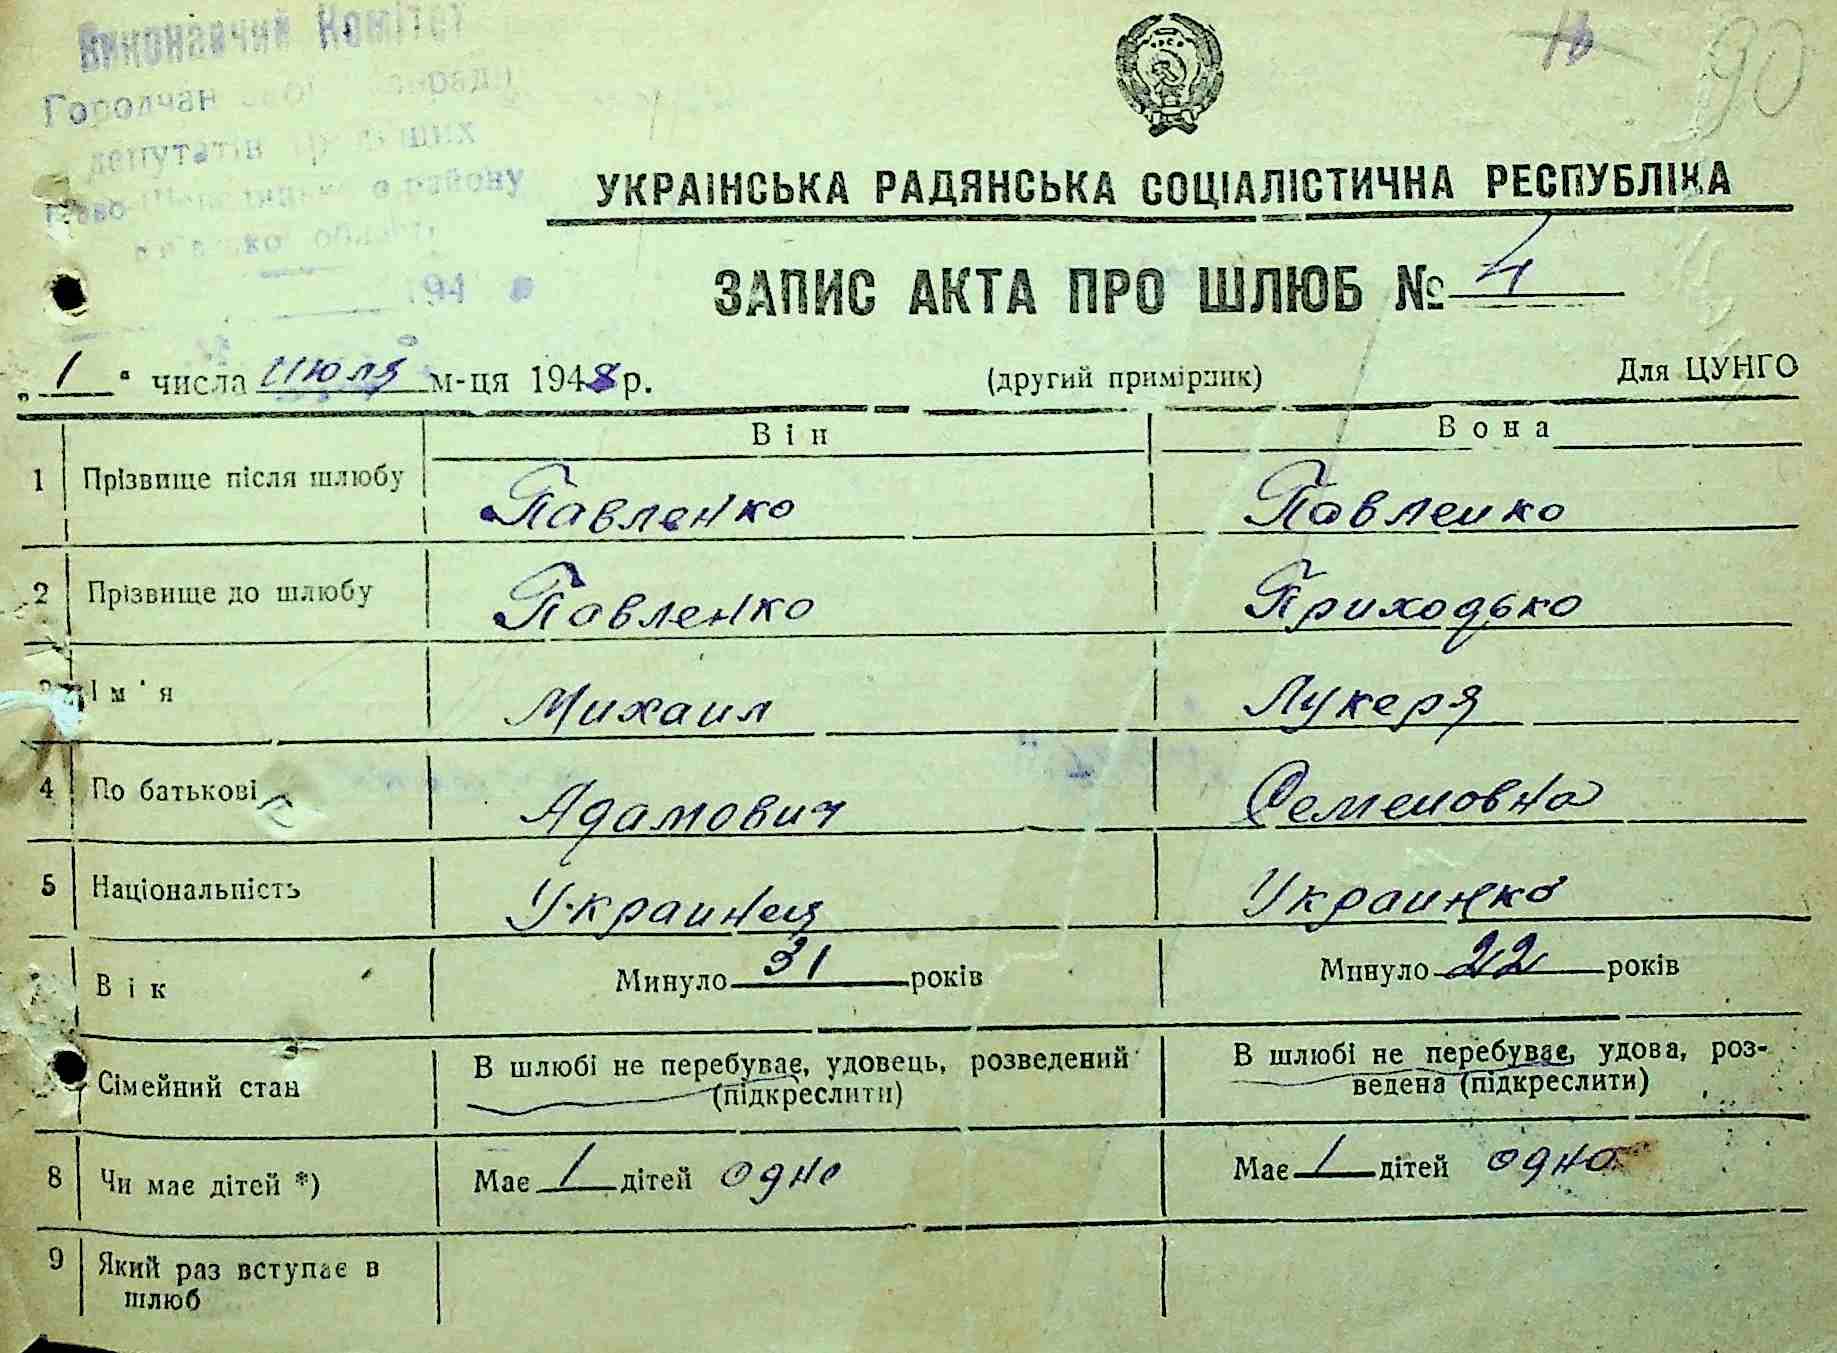 Виконавчий Комітет
депутатів
району
194
90
УКРАЇНСЬКА РАДЯНСЬКА СОЦІАЛІСТИЧНА РЕСПУБЛІКА
ЗАПИС АКТА ПРО ШЛЮБ № 4
„1“ числа Июля м-ця 1948 р. (другий примірник) Для ЦУНГО
Він Вона
1 Прізвище після шлюбу Павленко Павленко
2 Прізвище до шлюбу Павленко Приходько
3 Ім'я Михаил Лукеря
4 По батькові Адамович Семеновна
5 Національність Украинец Украинка
Вік Минуло 31 років Минуло 22 років
Сімейний стан В шлюбі не перебуває, удовець, розведений (підкреслити) В шлюбі не перебуває, удова, роз-
ведена (підкреслити)
8 Чи має дітей *) Має 1 дітей одно Має 1 дітей одно
9 Який раз вступає в
шлюб